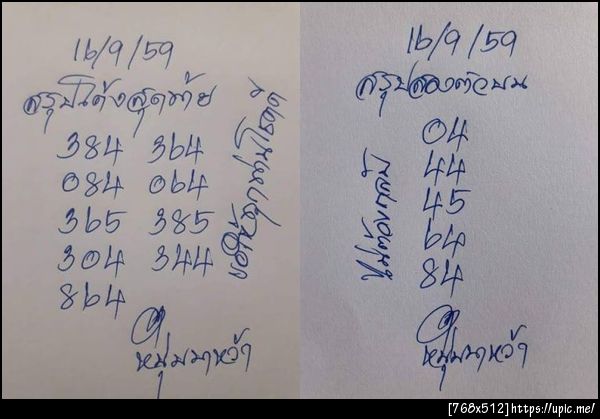 16/9/59
สรุปโค้งสุดท้าย
384 364
084 064
365 385
304 344
864
หนุ่มนาหว้า
16/9/59
สรุปสองตัวบน
04
44
45
64
84
หนุ่มนาหว้า
[768x512]https://upic.me/